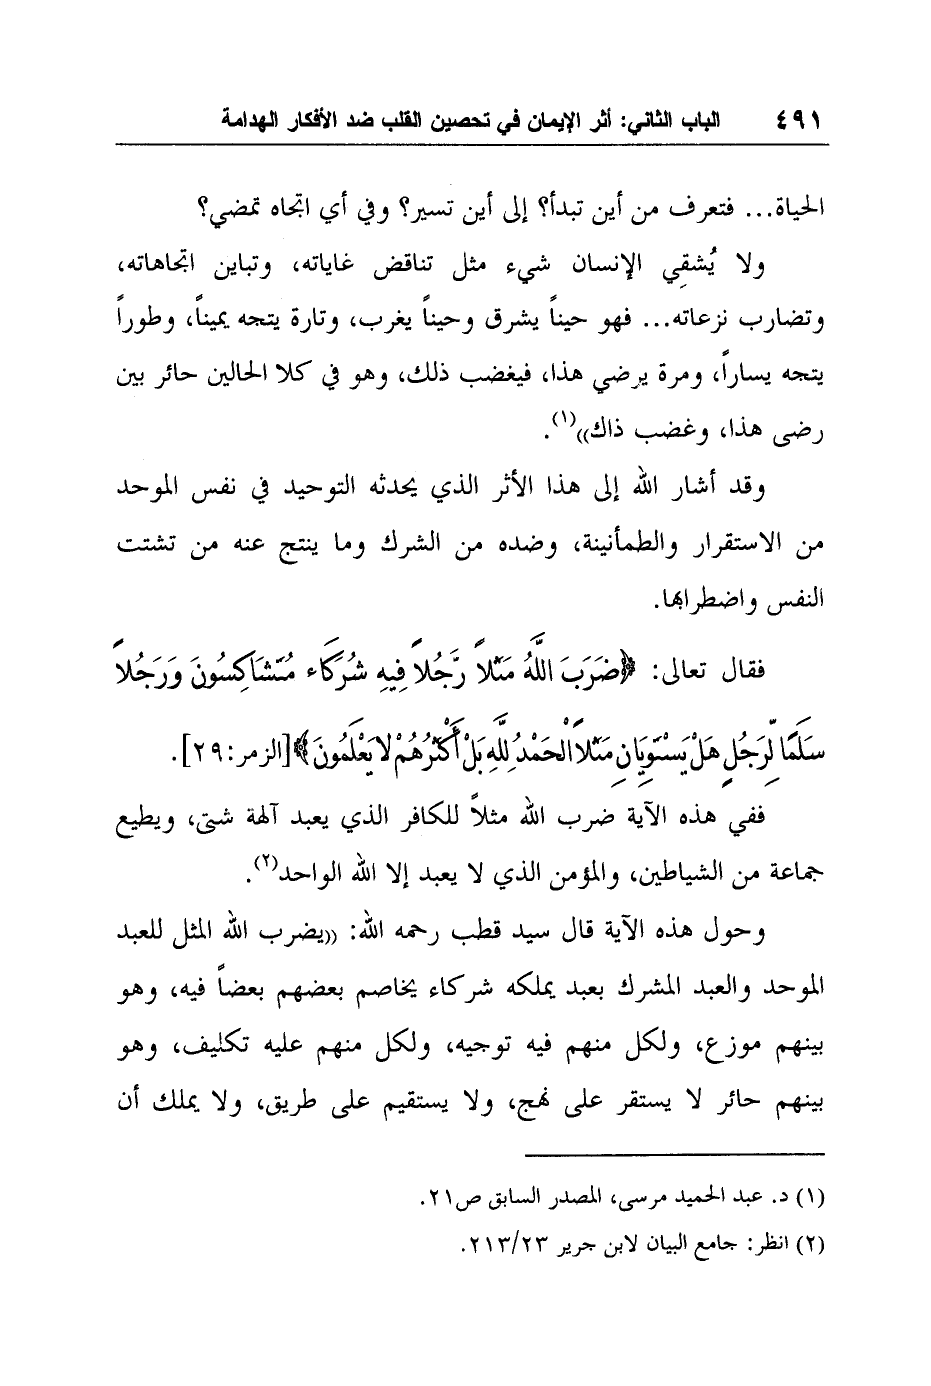 ٤٩١ الباب الثاني: أثر الإيمان في تحصين القلب ضد الأفكار الهدامة
الحياة... فتعرف من أين تبدأ؟ إلى أين تسير؟ وفي أي اتجاه تمضي؟
ولا يُشقِي الإنسان شيء مثل تناقض غاياته، وتباين اتجاهاته،
وتضارب نزعاته... فهو حيناً يشرق وحيناً يغرب، وتارة يتجه يميناً، وطوراً
يتجه يساراً، ومرة يرضي هذا، فيغضب ذلك، وهو في كلا الحالين حائر بين
رضى هذا، وغضب ذاك))(١).
وقد أشار الله إلى هذا الأثر الذي يحدثه التوحيد في نفس الموحد
من الاستقرار والطمأنينة، وضده من الشرك وما ينتج عنه من تشتت
النفس واضطرابها.
فقال تعالى: ﴿ضَرَبَ اللَّهُ مَثَلاً رَّجُلاً فِيهِ شُرَكَاء مُتَشَاكِسُونَ وَرَجُلاً
سَلَمًا لِّرَجُلٍ هَلْ يَسْتَوِيَانِ مَثَلاً الْحَمْدُ لِلَّهِ بَلْ أَكْثَرُهُمْ لا يَعْلَمُونَ﴾[الزمر:٢٩].
ففي هذه الآية ضرب الله مثلاً للكافر الذي يعبد آلهة شتى، ويطيع
جماعة من الشياطين، والمؤمن الذي لا يعبد إلا الله الواحد(٢).
وحول هذه الآية قال سيد قطب رحمه الله: ((يضرب الله المثل للعبد
الموحد والعبد المشرك بعبد يملكه شركاء يخاصم بعضهم بعضاً فيه، وهو
بينهم موزع، ولكل منهم فيه توجيه، ولكل منهم عليه تكليف، وهو
بينهم حائر لا يستقر على نهج، ولا يستقيم على طريق، ولا يملك أن
(١) د. عبد الحميد مرسى، المصدر السابق ص٢١.
(٢) انظر: جامع البيان لابن جرير ٢١٣/٢٣.